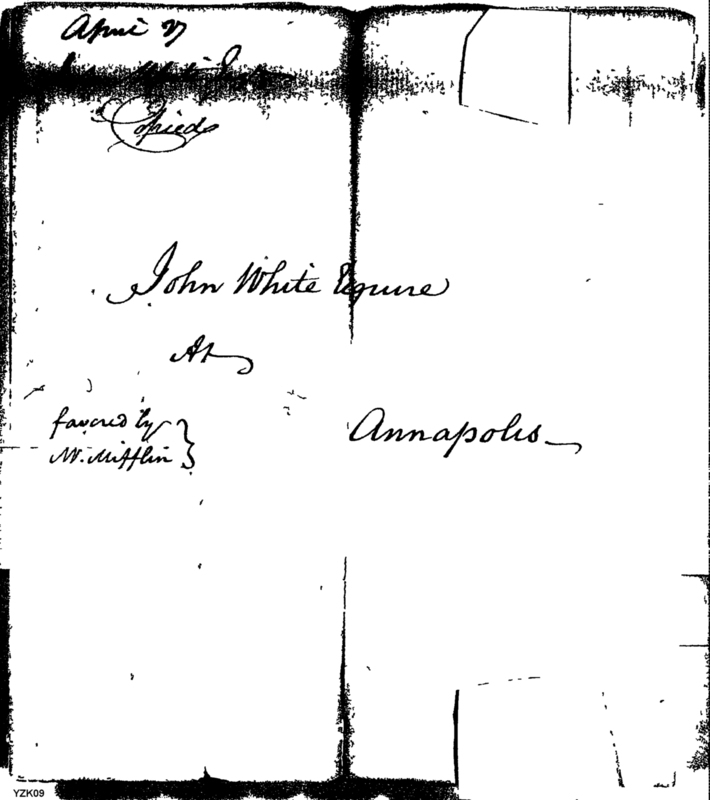 April 27
Copied
John White Esquire
At
Annapolis
favored by
Mr. Mifflin
YZK09